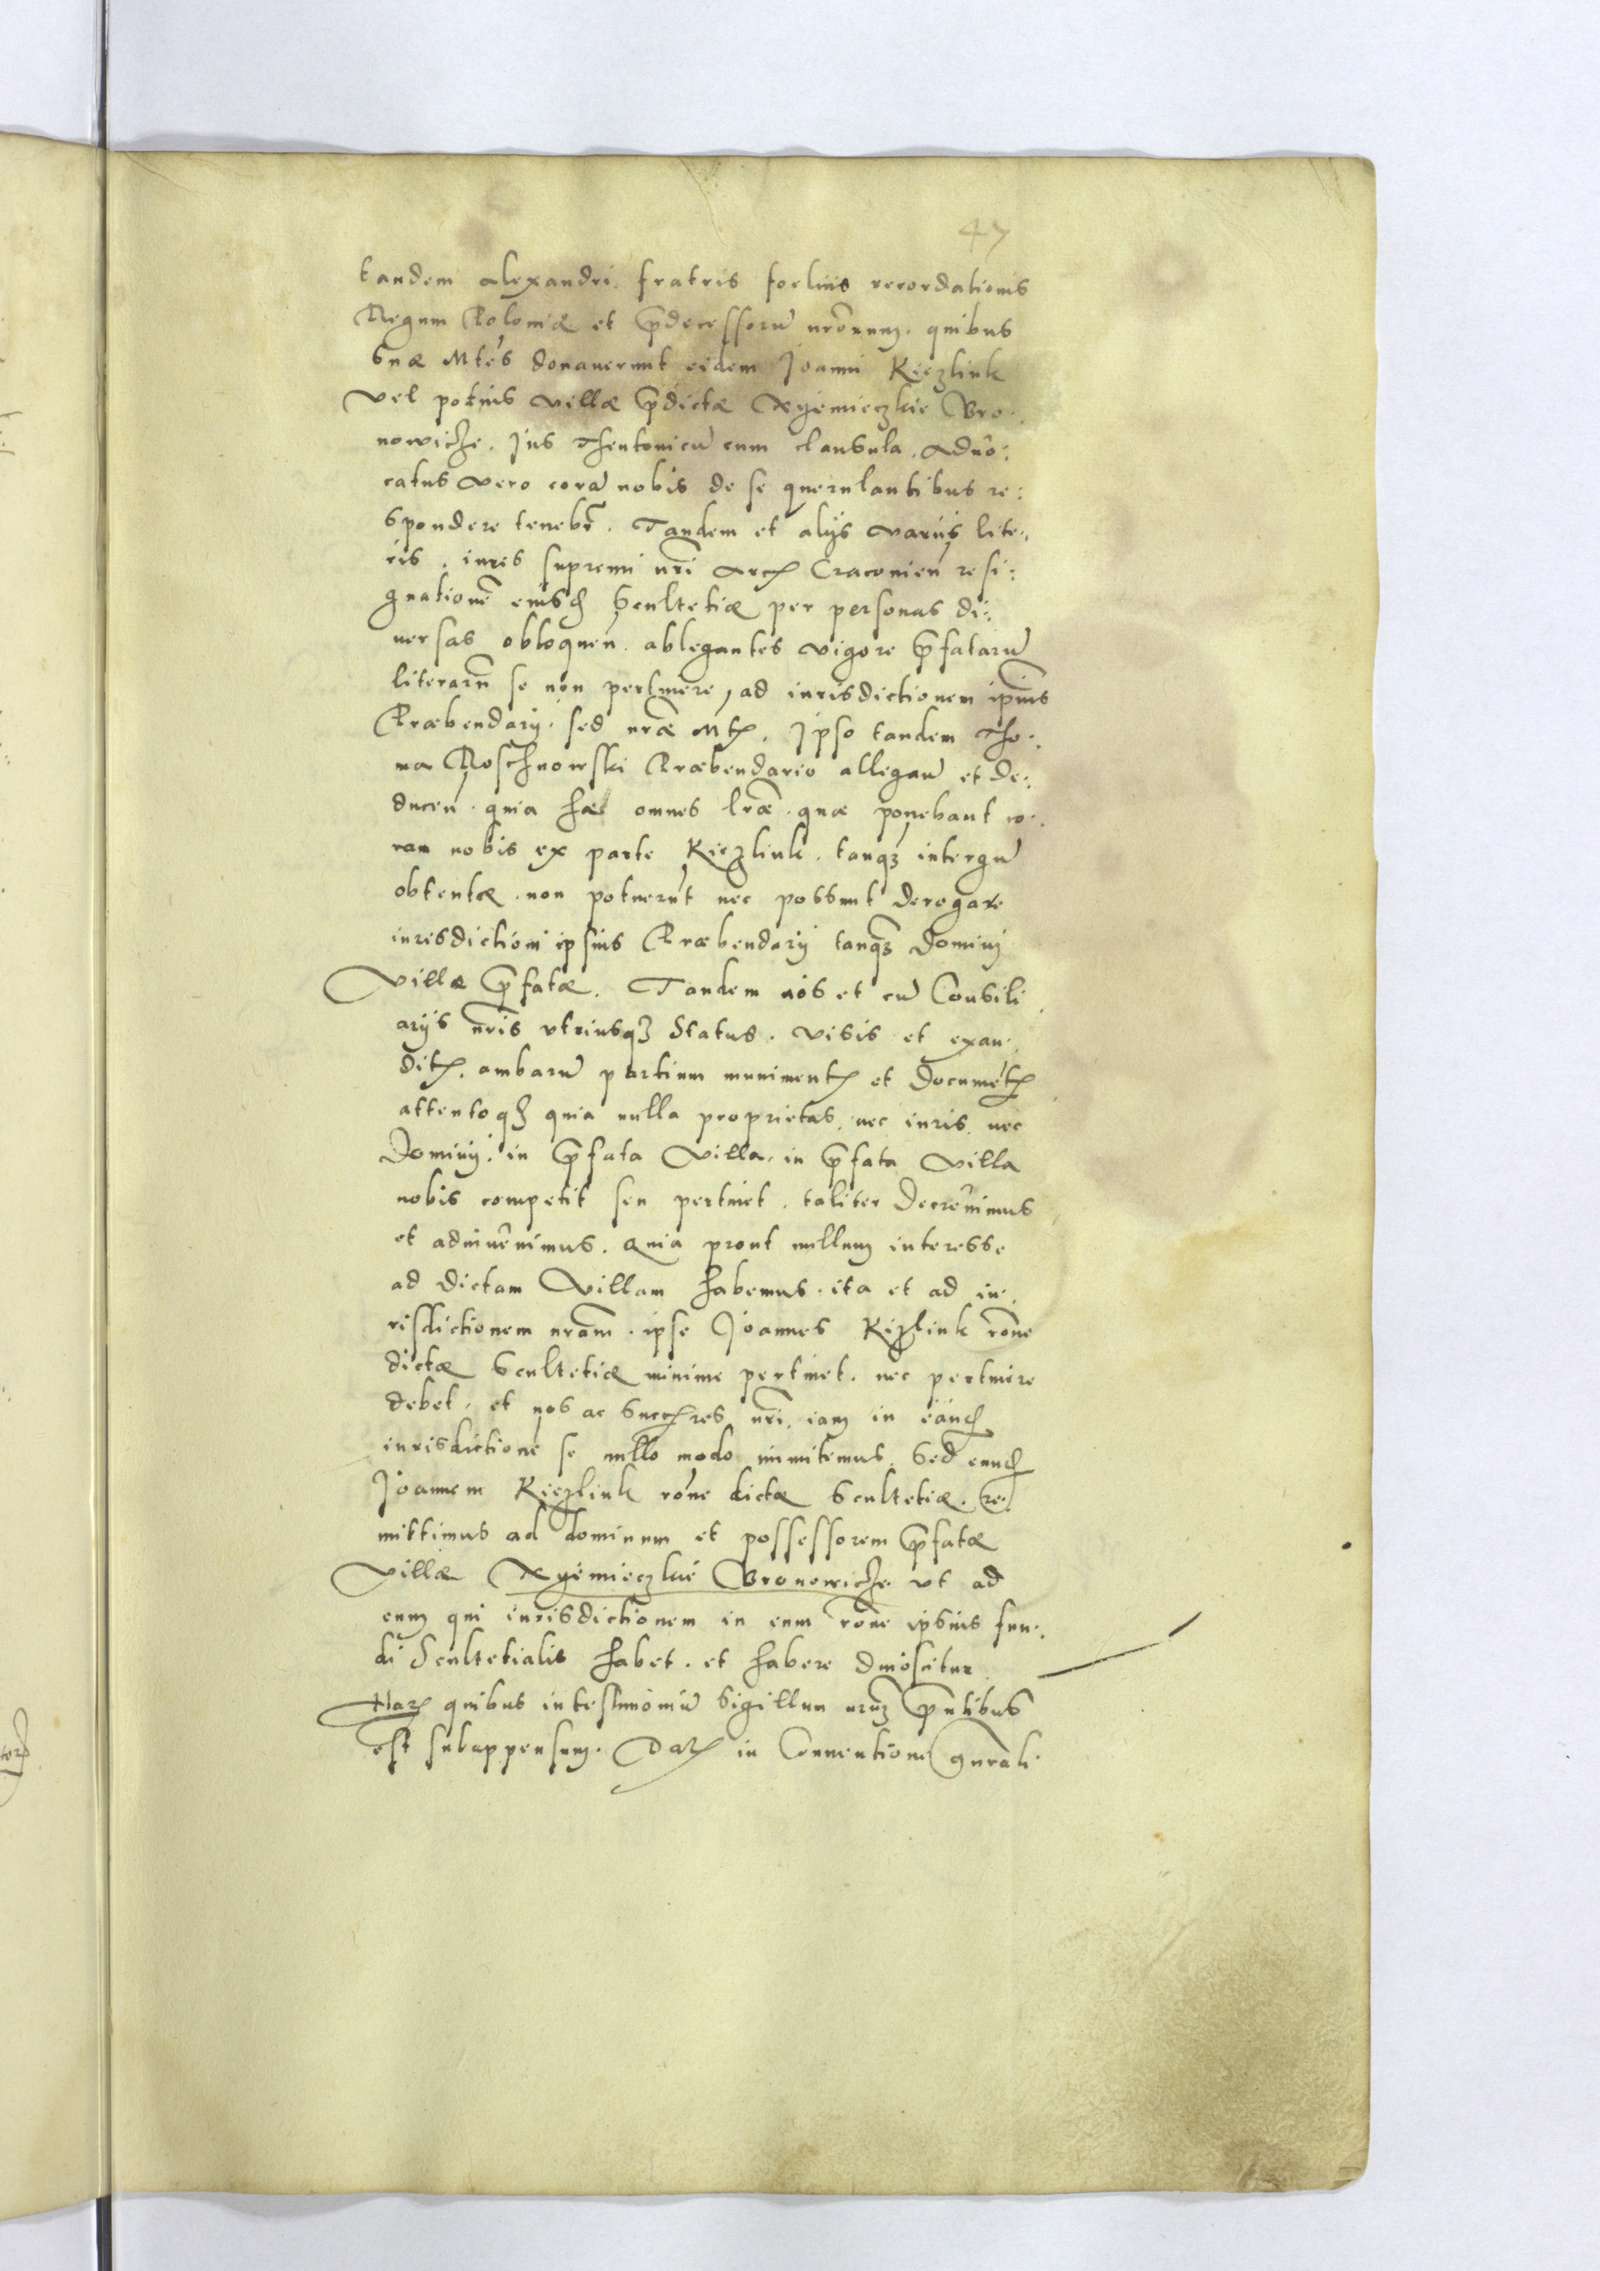 47
tandem Alexandri. fratris foelicis recordationis
Regum Poloniæ et p̄decessorū nr̄orum. quibus
Suæ Mtēs donaverunt eidem Joanni Kiezlink
vel potius villæ p̄dictæ Nyemieczkie Bro.
nowicze. Jus Theutonicū cum clausula. Advo:
catus vero corā nobis de se querulantibus re:
spondere tenebr̄. Tandem et alijs varijs lite:
ris. iuris supremi nr̄i Arc Cracovien̄ resi:
gnationē eiusd Scultetiæ per personas di:
versas obloquen̄. ablegantes vigore p̄fatarū
literarū se non pertinere, ad iurisdictionem ip̄ius
Præbendarij. sed nr̄æ Mt. Ipso tandem Tho:
ma Roschnowski Præbendario allegan̄ et de:
ducen̄. quia hæ omnes lr̄æ. quæ ponebant co:
ram nobis ex parte Kiezlink. tanqz intergū
obtentæ. non potuerūt nec possunt derogare
iurisdictioni ipsius Præbendarij tanqz Domini
Villæ p̄fatæ. Tandem nos et cū Consili
arijs nr̄is utriusqz Status. visis et exau:
dit. ambarū partium muniment et documēt
attentoqz quia nulla proprietas. nec iuris. nec
Dominij. in p̄fata Villa. in p̄fata Villa
nobis competit seu pertinet. taliter decrevimus
et adinvenimus. Quia prout nullum interesse
ad dictam Villam habemus. ita et ad iu:
risdictionem nr̄am. ipse Joannes Kizlink rōne
dictæ Scultetiæ minime pertinet. nec pertinere
debet. et nos ac Succres nr̄i. iam in eand
iurisdictionē se nullo modo inmitemus. Sed eund
Joannem Kiezlink rōne dictæ Scultetiæ. re:
mittimus ad dominum et possessorem p̄fatæ
Villæ Nyemieczkie Bronowicze ut ad
eum qui iurisdictionem in eum rōne ipsius fun:
di Scultetialis habet. et habere dinoscitur
Har quibus in testimoniū Sigillum nrm p̄ntibus
est subappensum. Dat in Conventione gn̄rali.